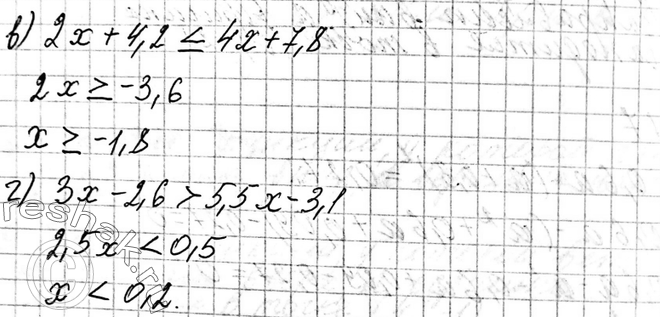 в) 2x + 4,2 ≤ 4x + 7,8
2x ≥ -3,6
x ≥ -1,8
г) 3x - 2,6 > 5,5x - 3,1
2,5x < 0,5
x < 0,2.
reshak.ru